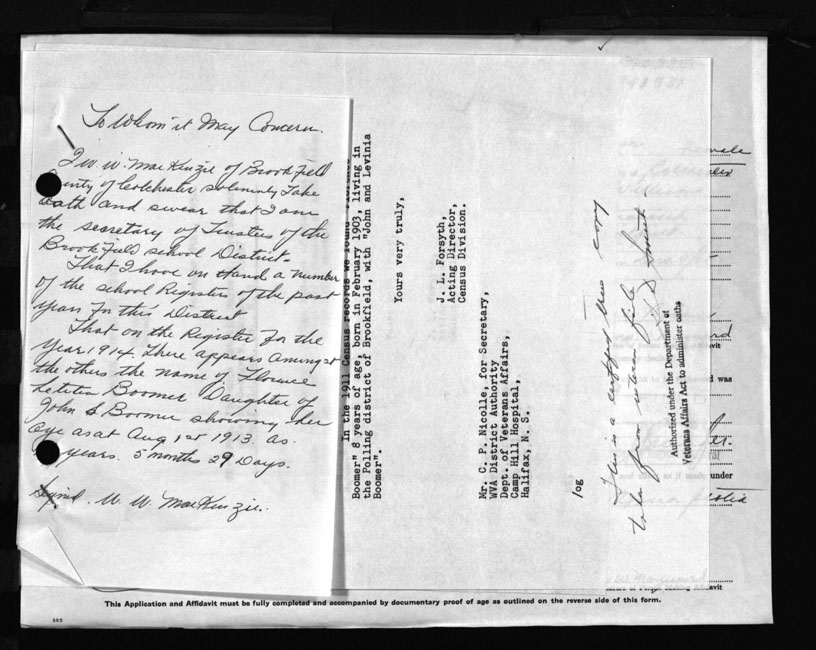 To Whom it May Concern.
I W. W. MacKinzie of Brookfield
County of Colchester solemnly Take
oath and swear that I am
the secretary of Trustees of the
Brookfield school District.
That I have on Hand a number
of the school Registers of the past
years For this District
That on the Register For the
Year 1914 There appears Amongst
the others the name of Florence
Letitia Boomer Daughter of
John S Boomer showing her
age as at Aug 1st 1913. as
years. 5 months 29 Days.
Signed. W. W. MacKinzie.
In the 1911 Census records we found "Florence
Boomer" 8 years of age, born in February 1903, living in
the Polling district of Brookfield, with "John and Levinia
Boomer".
Yours very truly,
J. L. Forsyth,
Acting Director,
Census Division.
Mr. C. P. Nicolle, for Secretary,
WVA District Authority
Dept. of Veterans Affairs,
Camp Hill Hospital,
Halifax, N. S.
/og
This is a certified true copy
taken from veterans file
Authorized under the Department of
Veterans Affairs Act to administer oaths
Female
was
under
This Application and Affidavit must be fully completed and accompanied by documentary proof of age as outlined on the reverse side of this form.